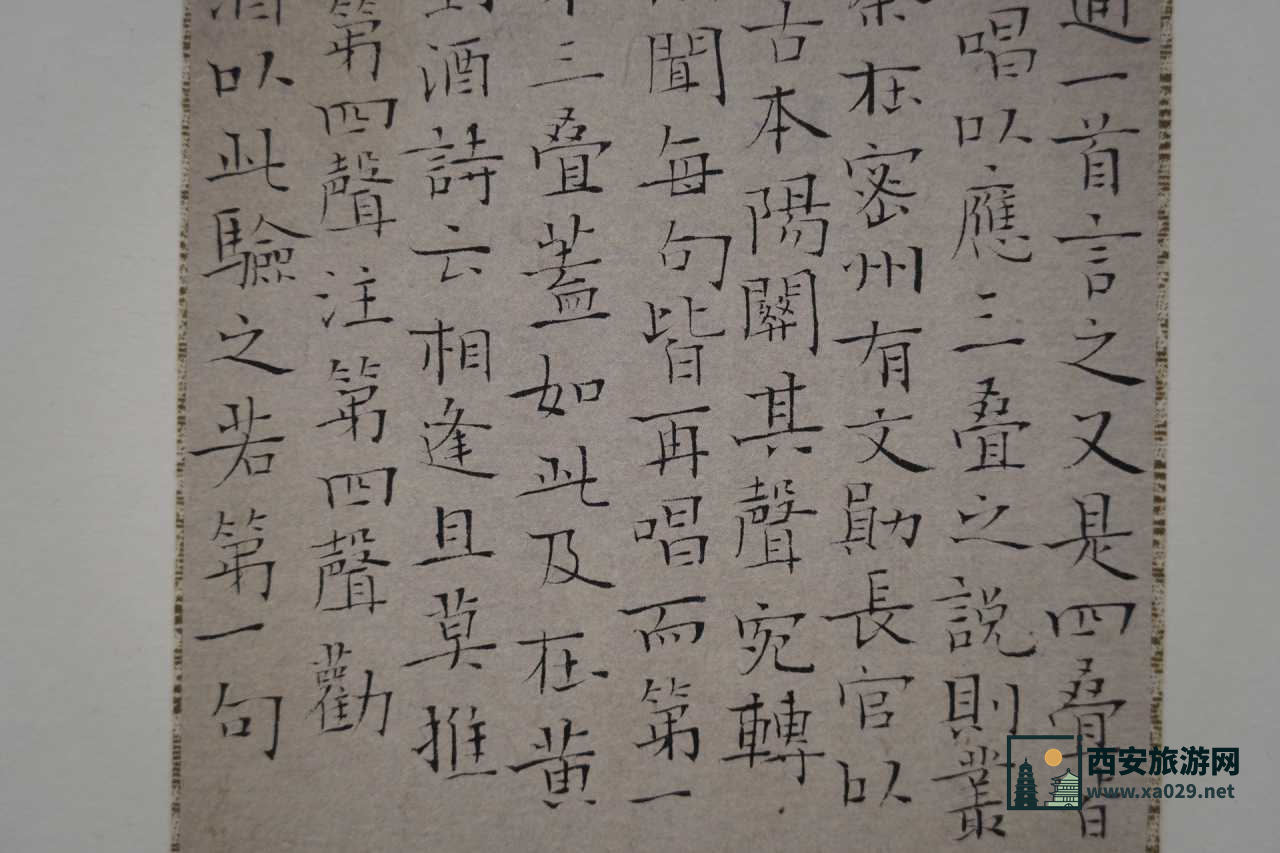 一首言之又是四疊皆
唱以應三疊之說則叢
在密州有文勛長官以
古本陽關其聲宛轉
聞每句皆再唱而第一
三疊蓋如此及在黃
對酒詩云相逢且莫推
第四聲注第四聲勸
酒以此驗之若第一句
西安旅游网
www.xa029.net